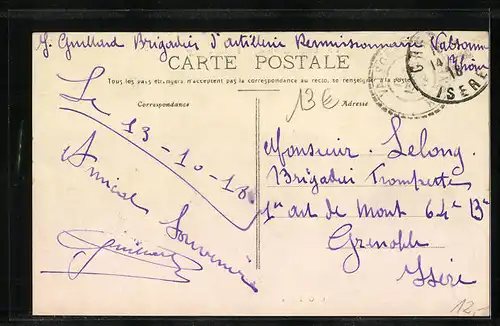 J. Guillard Brigadier d'artillerie Permissionnaire Valbonne
CARTE POSTALE
Tous les pays étrangers n'acceptent pas la correspondance au recto, se renseigner à la poste
Correspondance
Adresse
13€
ISERE
Le 13-10-18
Amical Souvenir
Guillard
Monsieur Lelong
Brigadier Trompette
1er art de Mont 64e Bie
Grenoble
Isère
12,-